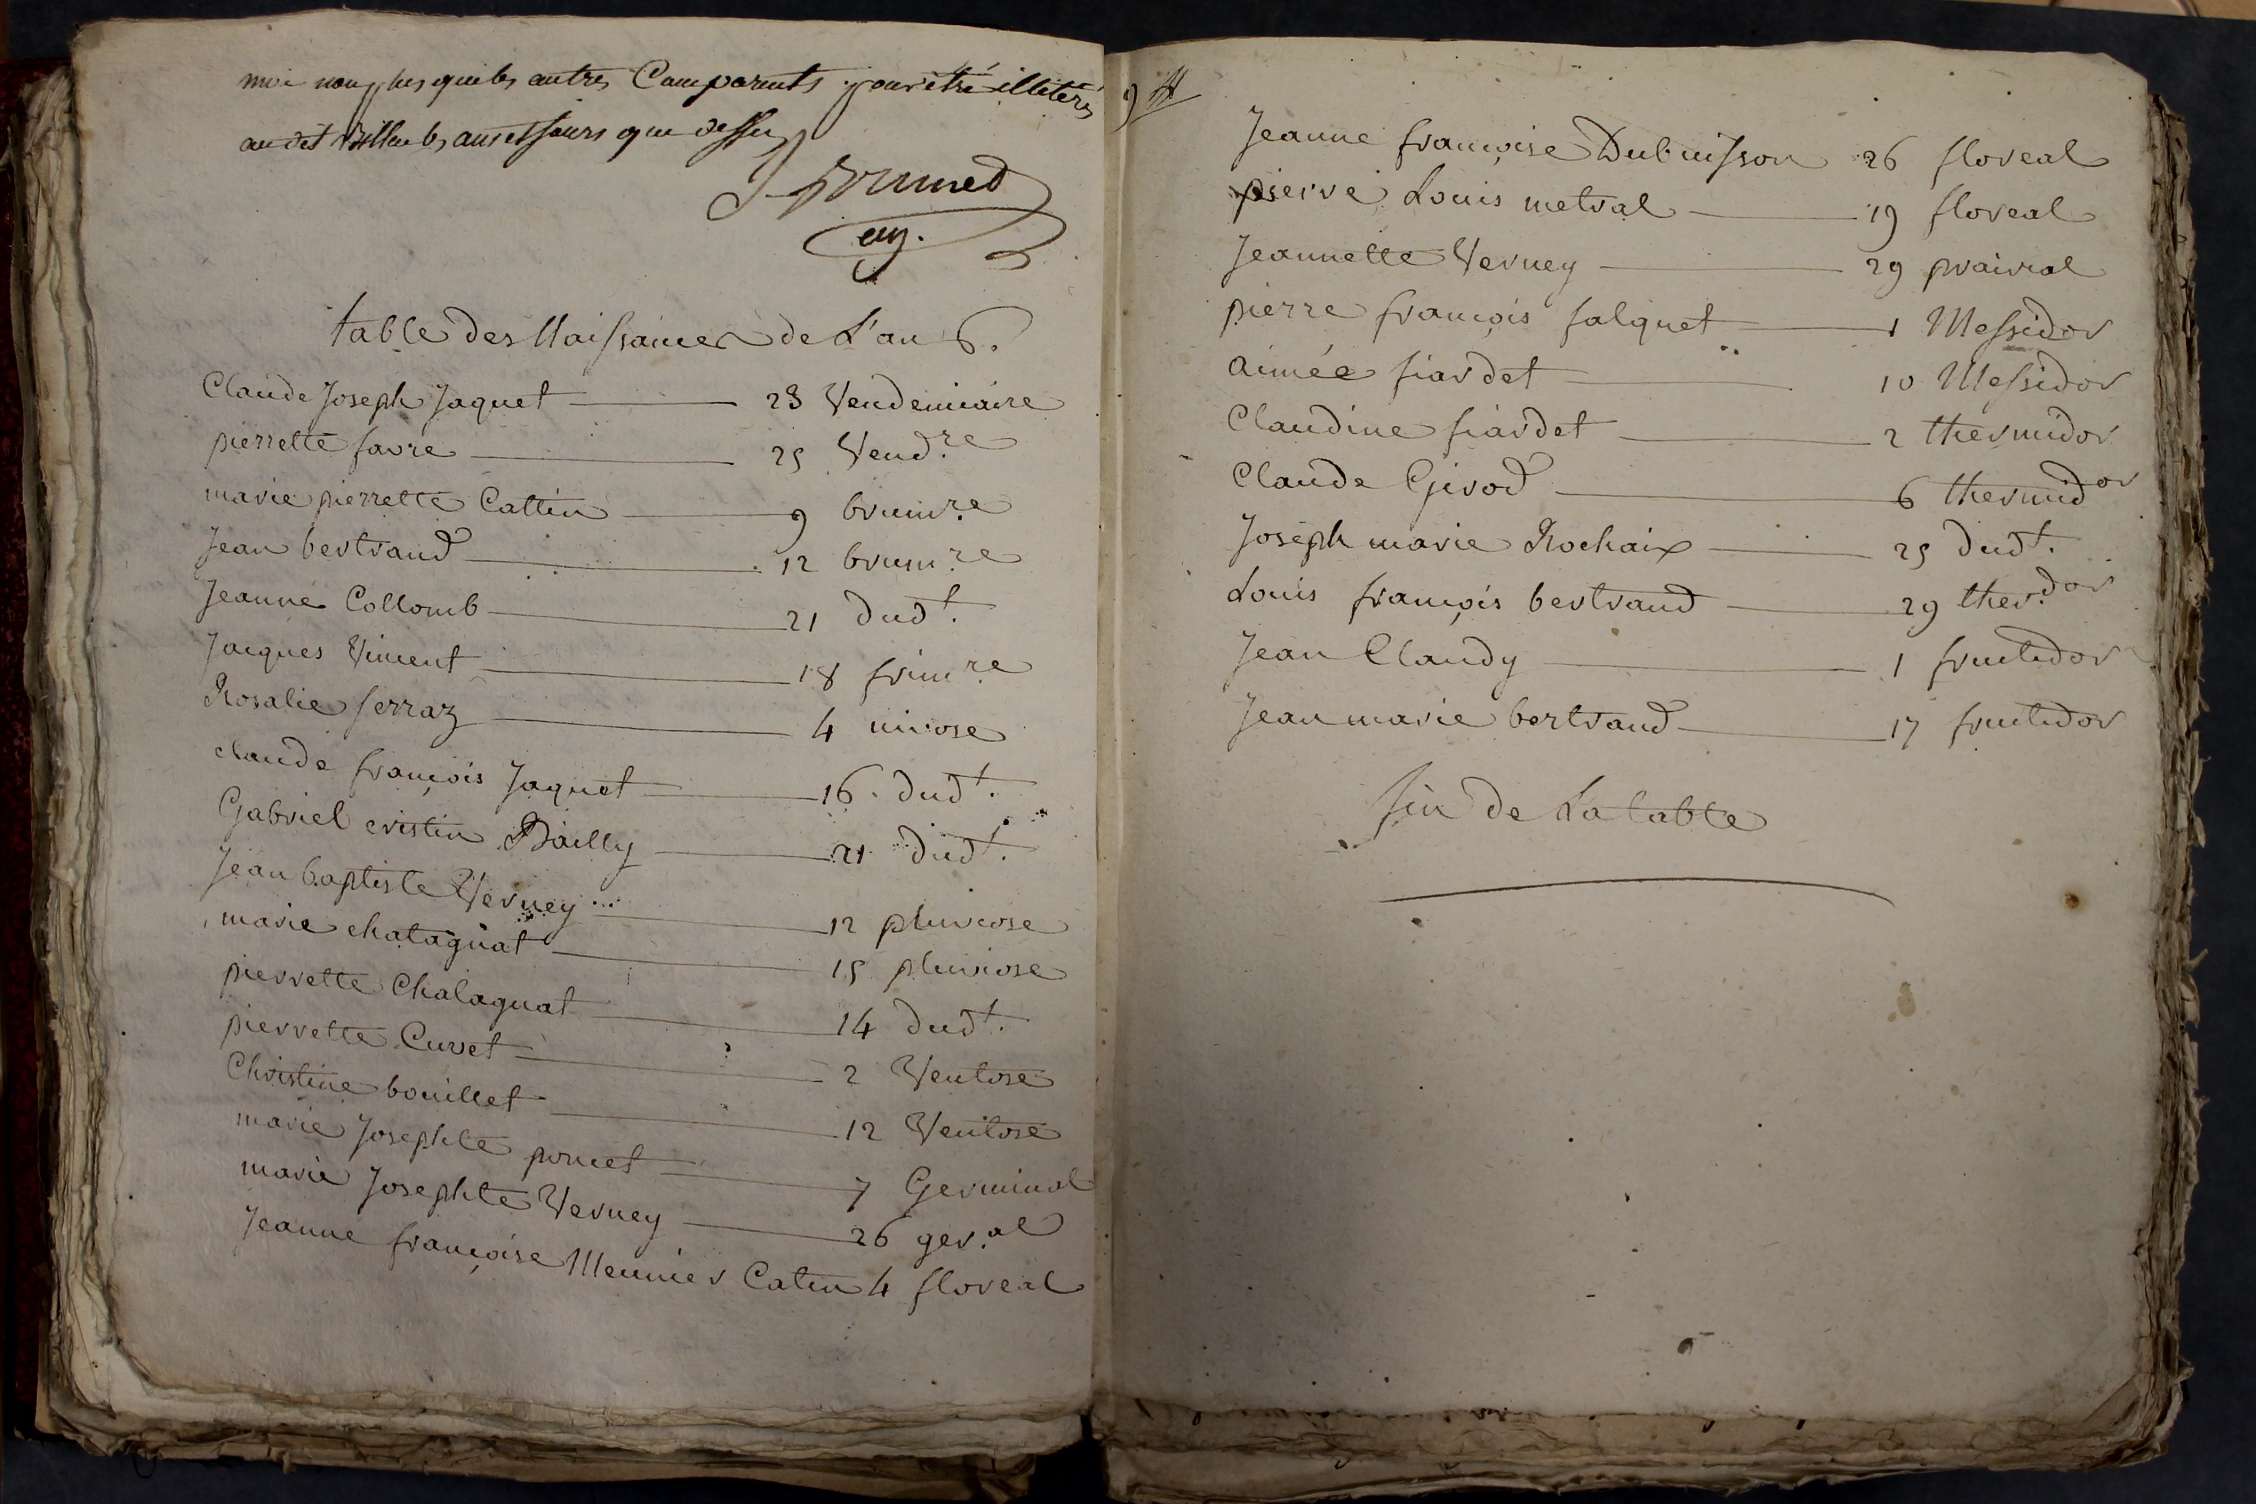 moi non plus que les autres Comparents pour etré illiterés
au dit Villou les ans et jours que dessus
table des Naissances de L'an 6.
Claude Joseph Jaquet 28 Vendemiaire
pierrette favre 25 Vend.re
marie pierrette Cattin 9 brum.re
Jean bertrand 12 brum.re
Jeanne Collomb 21 dud.t
Jacques Vincent 18 frim.re
Rosalie ferraz 4 nivose
claude françois Jaquet 16. dud.t
Gabriel cristin Bailly 21 dud.t
Jean baptiste Verney 12 pluviose
marie chatagnat 15 pluviose
pierrette Chatagnat 14 dud.t
pierrette Curset 2 Ventose
Christine bouillet 12 Ventose
marie Josephte poncet 7 Germinal
marie Josephte Verney 26 ger.al
Jeanne françoise Meunier Catin 4 floreal
Jeanne françoise Dubuisson 26 floreal
pierre Louis metral 19 floreal
Jeannette Verney 29 prairial
pierre françois falquet 1 Messidor
aimée fiardet 10 Messidor
Claudine fiardet 2 thermidor
Claude Girod 6 thermidor
Joseph marie Rochaix 25 dud.t
Louis françois bertrand 29 ther.dor
Jean Claudy 1 fructidor
Jean marie bertrand 17 fructidor
fin de La table